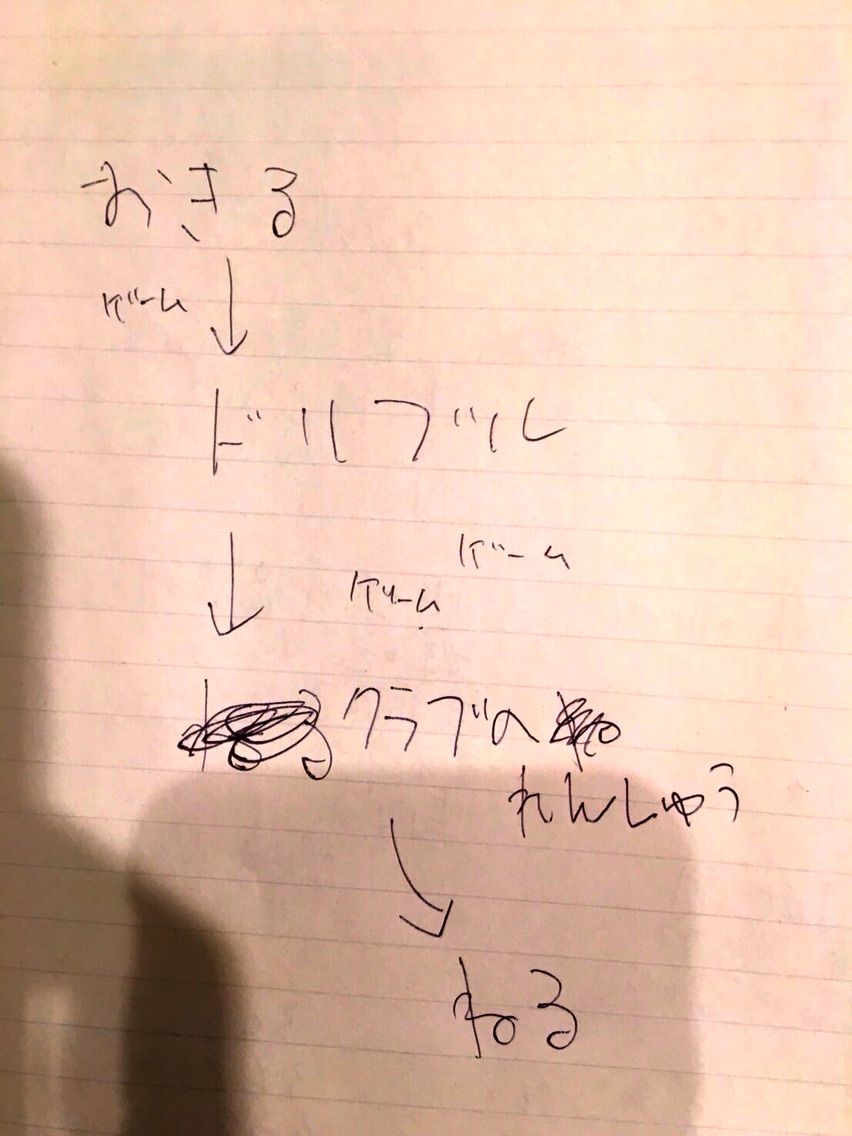 おきる
ゲーム
ドリブル
ゲーム
ゲーム
クラブの
れんしゅう
ねる